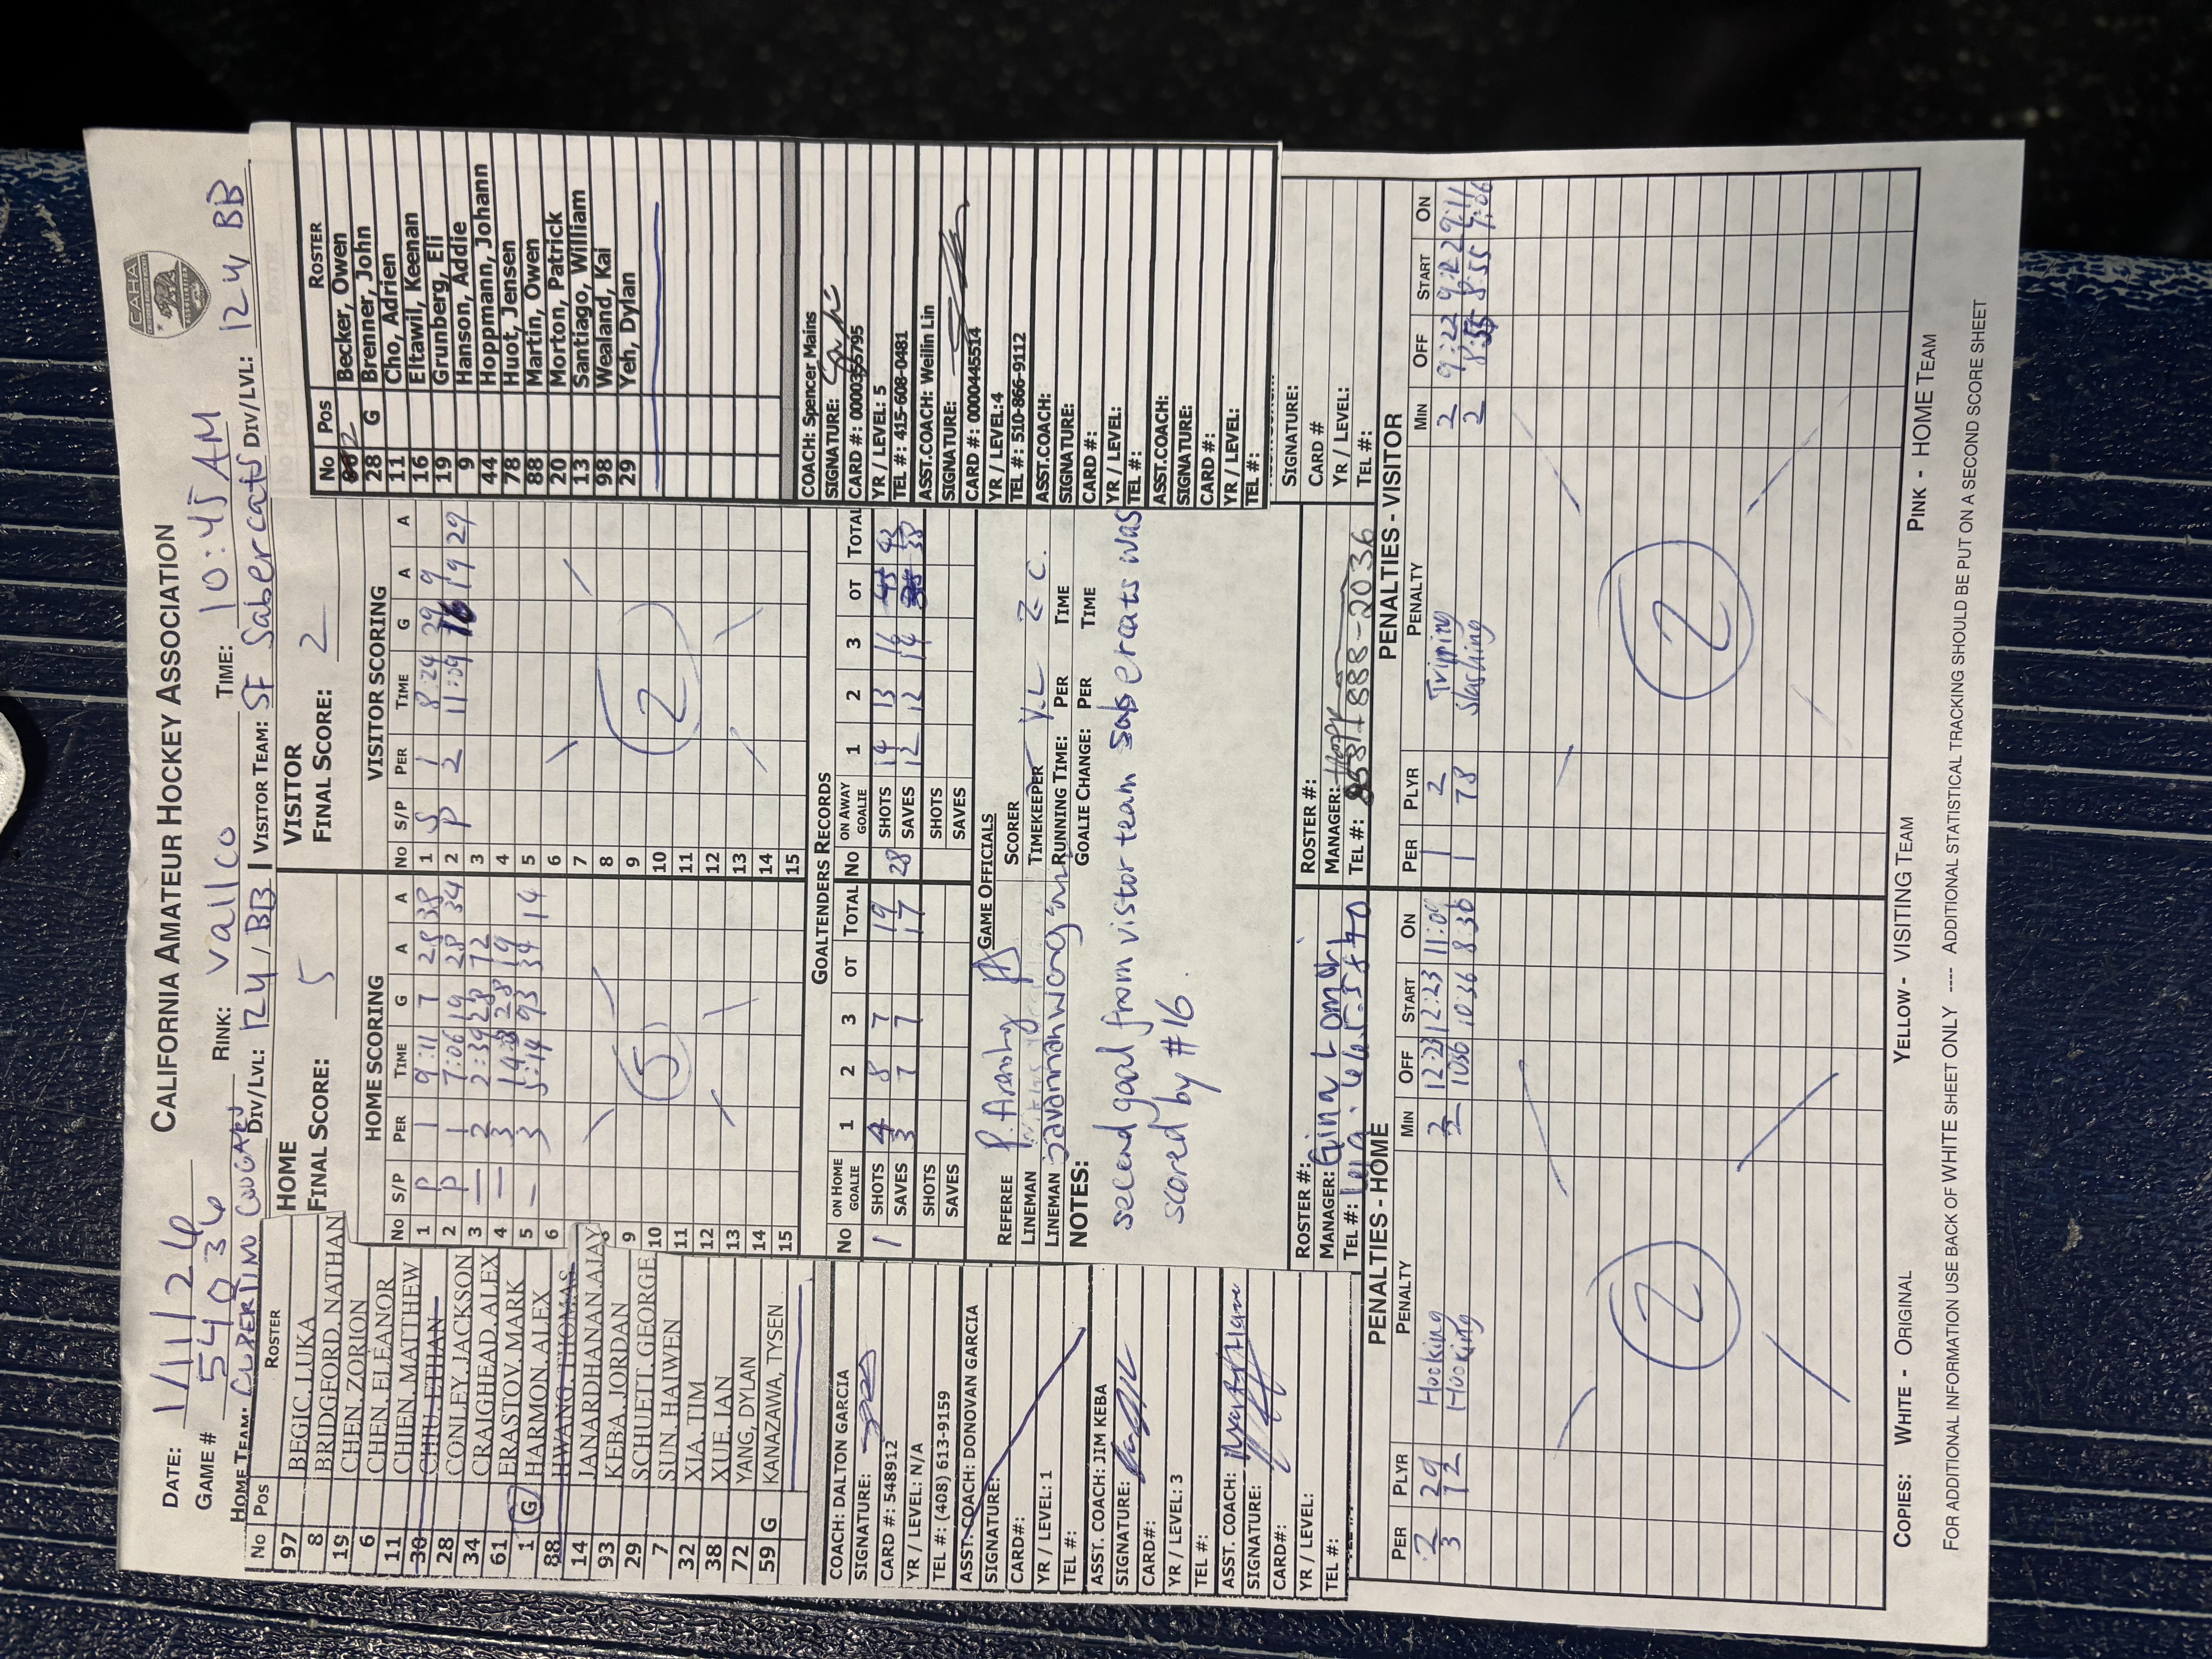 CALIFORNIA AMATEUR HOCKEY ASSOCIATION
CAHA
DATE: 1/11/26
GAME # 54036 RINK: Vallco TIME: 10:45 AM
HOME TEAM: CUPERTINO COUGARS DIV/LVL: 12U/BB VISITOR TEAM: SF Sabercats DIV/LVL: 12U BB
No Pos ROSTER
97 BEGIC, LUKA
8 BRIDGEFORD, NATHAN
19 CHEN, ZORION
6 CHEN, ELEANOR
11 CHIEN, MATTHEW
30 CHIU, ETHAN
28 CONLEY, JACKSON
34 CRAIGHEAD, ALEX
61 ERASTOV, MARK
1 G HARMON, ALEX
88 HWANG, THOMAS
14 JANARDHANAN, AJAY
93 KEBA, JORDAN
29 SCHUETT, GEORGE
7 SUN, HAIWEN
32 XIA, TIM
38 XUE, IAN
72 YANG, DYLAN
59 G KANAZAWA, TYSEN
COACH: DALTON GARCIA
SIGNATURE:
CARD #: 548912
YR / LEVEL: N/A
TEL #: (408) 613-9159
ASST. COACH: DONOVAN GARCIA
SIGNATURE:
CARD#:
YR / LEVEL: 1
TEL #:
ASST. COACH: JIM KEBA
SIGNATURE:
CARD#:
YR / LEVEL: 3
TEL #:
ASST. COACH:
SIGNATURE:
CARD#:
YR / LEVEL:
TEL #:
HOME
FINAL SCORE: 5
HOME SCORING
No S/P PER TIME G A A
1 P 1 9:11 7 28 38
2 P 1 7:06 19 28 34
3 — 2 2:39 28 72
4 — 3 28 19
5 — 3 5:14 93 34 14
6
7
8
9
10
11
12
13
14
15
5
VISITOR
FINAL SCORE: 2
VISITOR SCORING
No S/P PER TIME G A A
1 S 1 8:24 29 9
2 P 2 11:09 16 19 29
3
4
5
6
7
8
9
10
11
12
13
14
15
2
No Pos ROSTER
2 Becker, Owen
28 G Brenner, John
11 Cho, Adrien
16 Eltawil, Keenan
19 Grunberg, Eli
9 Hanson, Addie
44 Hoppmann, Johann
78 Huot, Jensen
88 Martin, Owen
20 Morton, Patrick
13 Santiago, William
98 Wealand, Kai
29 Yeh, Dylan
COACH: Spencer Mains
SIGNATURE:
CARD #: 0000355795
YR / LEVEL: 5
TEL #: 415-608-0481
ASST.COACH: Weilin Lin
SIGNATURE:
CARD #: 0000445514
YR / LEVEL:4
TEL #: 510-866-9112
ASST.COACH:
SIGNATURE:
CARD #:
YR / LEVEL:
TEL #:
ASST.COACH:
SIGNATURE:
CARD #:
YR / LEVEL:
TEL #:
SIGNATURE:
CARD #
YR / LEVEL:
TEL #:
GOALTENDERS RECORDS
No ON HOME GOALIE 1 2 3 OT TOTAL
1 SHOTS 4 8 7 19
SAVES 3 7 7 17
SHOTS
SAVES
No ON AWAY GOALIE 1 2 3 OT TOTAL
28 SHOTS 14 13 16 43
SAVES 12 12 14 38
SHOTS
SAVES
GAME OFFICIALS
REFEREE
LINEMAN
LINEMAN
SCORER
TIMEKEEPER Y.L Z C.
RUNNING TIME: PER TIME
GOALIE CHANGE: PER TIME
NOTES:
second goal from vistor team sabercats was
scored by #16.
ROSTER #:
MANAGER: Gina Lomanh
TEL #:
ROSTER #:
MANAGER:
TEL #: 858-888-2036
PENALTIES - HOME
PER PLYR PENALTY MIN OFF START ON
2 29 Hooking 2 12:23 12:23 11:09
3 72 Hooking 2 10:36 10:36 8:36
2
PENALTIES - VISITOR
PER PLYR PENALTY MIN OFF START ON
1 2 Tripping 2 9:22 9:22 9:11
1 78 Slashing 2 8:55 8:55 7:06
2
COPIES: WHITE - ORIGINAL YELLOW - VISITING TEAM PINK - HOME TEAM
FOR ADDITIONAL INFORMATION USE BACK OF WHITE SHEET ONLY ---- ADDITIONAL STATISTICAL TRACKING SHOULD BE PUT ON A SECOND SCORE SHEET